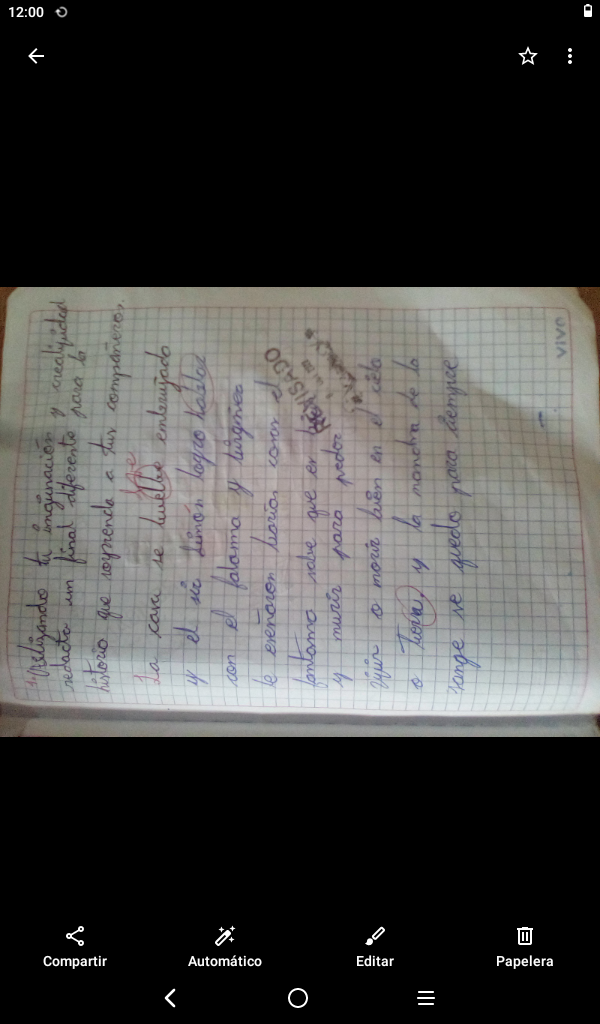 12:00
1. Utilizando tu imaginación y creatividad
redacta un final diferente para la
historia que sorprenda a tus compañeros.
La casa se vuelve embrujada
y el sir Simón logro hablar
con el fatasma y
le enseñaron varias cosas el
fantasma sabe que es
y murir para poder
vijir o morir bien en el cielo
o Tierra y la mancha de la
sange se quedo para siempre
REVISADO
VIVO
Compartir
Automático
Editar
Papelera